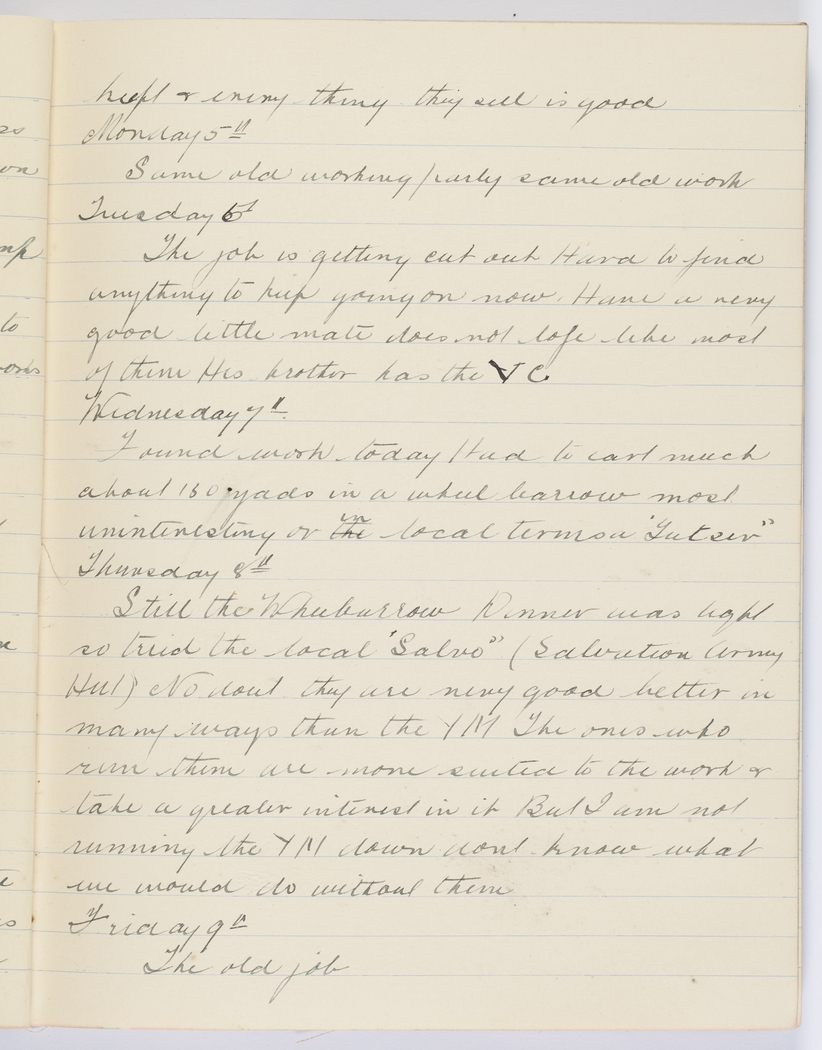 kept & every thing they sell is good
Monday 5th
Same old working party same old work
Tuesday 6th
The job is getting cut out Hard to find
anything to keep going on now. Have a very
good little mate does not lofe like most
of them His brother has the VC
Wednesday 7th.
Found work today Had to cart muck
about 150 yads in a wheel barrow most
uninteresting or the in local terms a "Tutser"
Thursday 8th
Still the Wheelbarrow Dinner was light
so tried the local "Salvo" (Salvation Army
Hut) No dout they are very good better in
many ways than the YM The ones who
run them are more suited to the work &
take a greater interest in it But I am not
running the YM down dont know what
we would do without them
Friday 9th
The old job